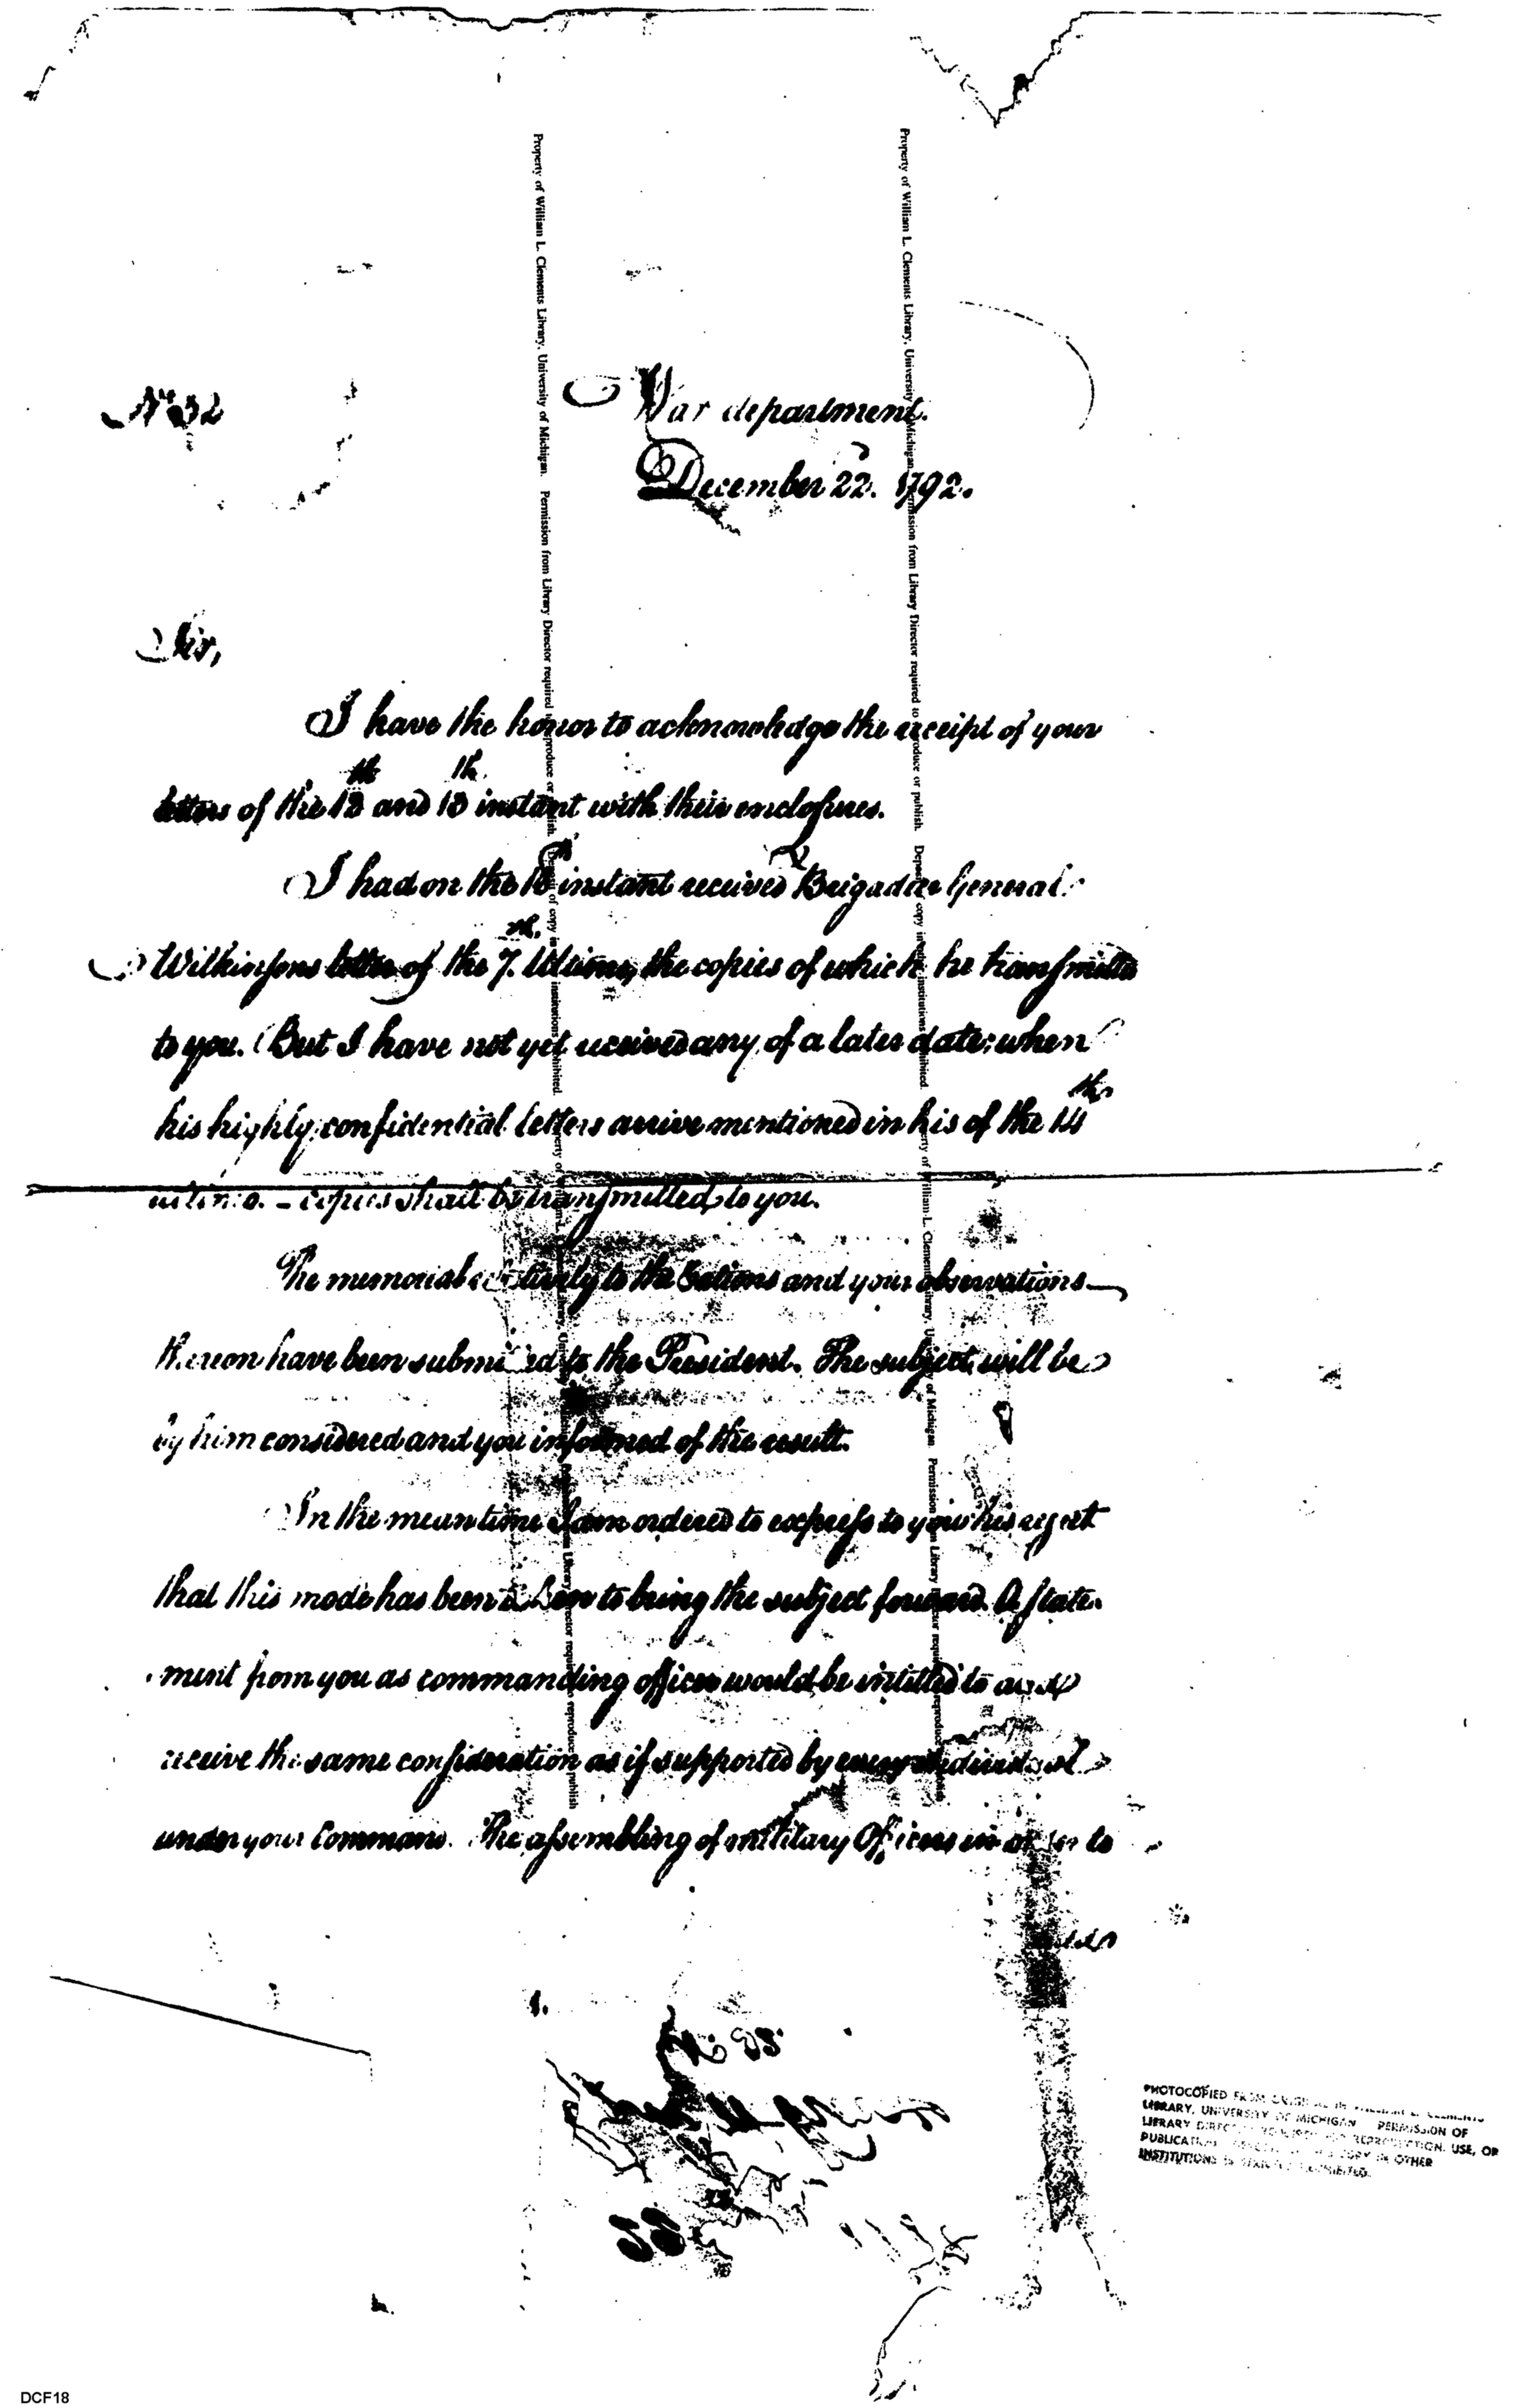 No 32
War department.
December 22. 1792.
Sir,
I have the honor to acknowledge the receipt of your
letters of the 12th and 13th instant with their enclosures.
I had on the instant received Brigadier General
Wilkinsons letter of the 7th. Ultimo, the copies of which he transmitted
to you. But I have not yet received any of a later date: when
his highly confidential letters arrive mentioned in his of the 14th
ultimo. – copies shall be transmitted to you.
The memorial relatively to the Rations and your observations
thereon have been submitted to the President. The subject will be
by him considered and you informed of the result.
In the mean time I am ordered to express to you his regret
that this mode has been taken to bring the subject forward. A state-
ment from you as commanding officer would be intitled to and
receive the same consideration as if supported by every individual
under your Command. The assembling of military Officers in order to
Property of William L. Clements Library, University of Michigan. Permission from Library Director required to reproduce or publish. Deposit of copy in institutions prohibited.
Property of William L. Clements Library, University of Michigan. Permission from Library Director required to reproduce or publish. Deposit of copy in institutions prohibited.
Property of William L. Clements Library, University of Michigan Permission from Library Director required to reproduce or publish
Property of William L. Clements Library, University of Michigan Permission from Library Director required to reproduce
PHOTOCOPIED FROM ORIGINAL IN WILLIAM L. CLEMENTS
LIBRARY, UNIVERSITY OF MICHIGAN PERMISSION OF
LIBRARY DIRECTOR REQUIRED FOR REPRODUCTION, USE, OR
PUBLICATION. COPY IN OTHER
INSTITUTIONS IS STRICTLY PROHIBITED.
DCF18